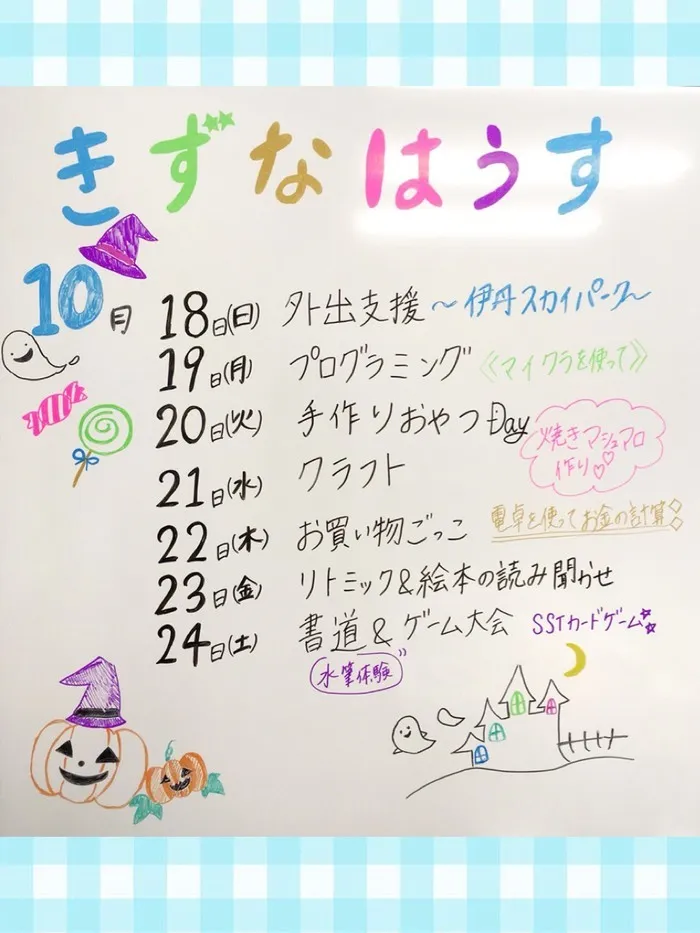 きずなはうす
10月
18日(日) 外出支援 〜伊丹スカイパーク〜
19日(月) プログラミング 《マイクラを使って》
20日(火) 手作りおやつDay 焼きマシュマロ
作り♡♡
21日(水) クラフト
22日(木) お買い物ごっこ 電卓を使ってお金の計算
23日(金) リトミック&絵本の読み聞かせ
24日(土) 書道&ゲーム大会 SSTカードゲーム
水筆体験